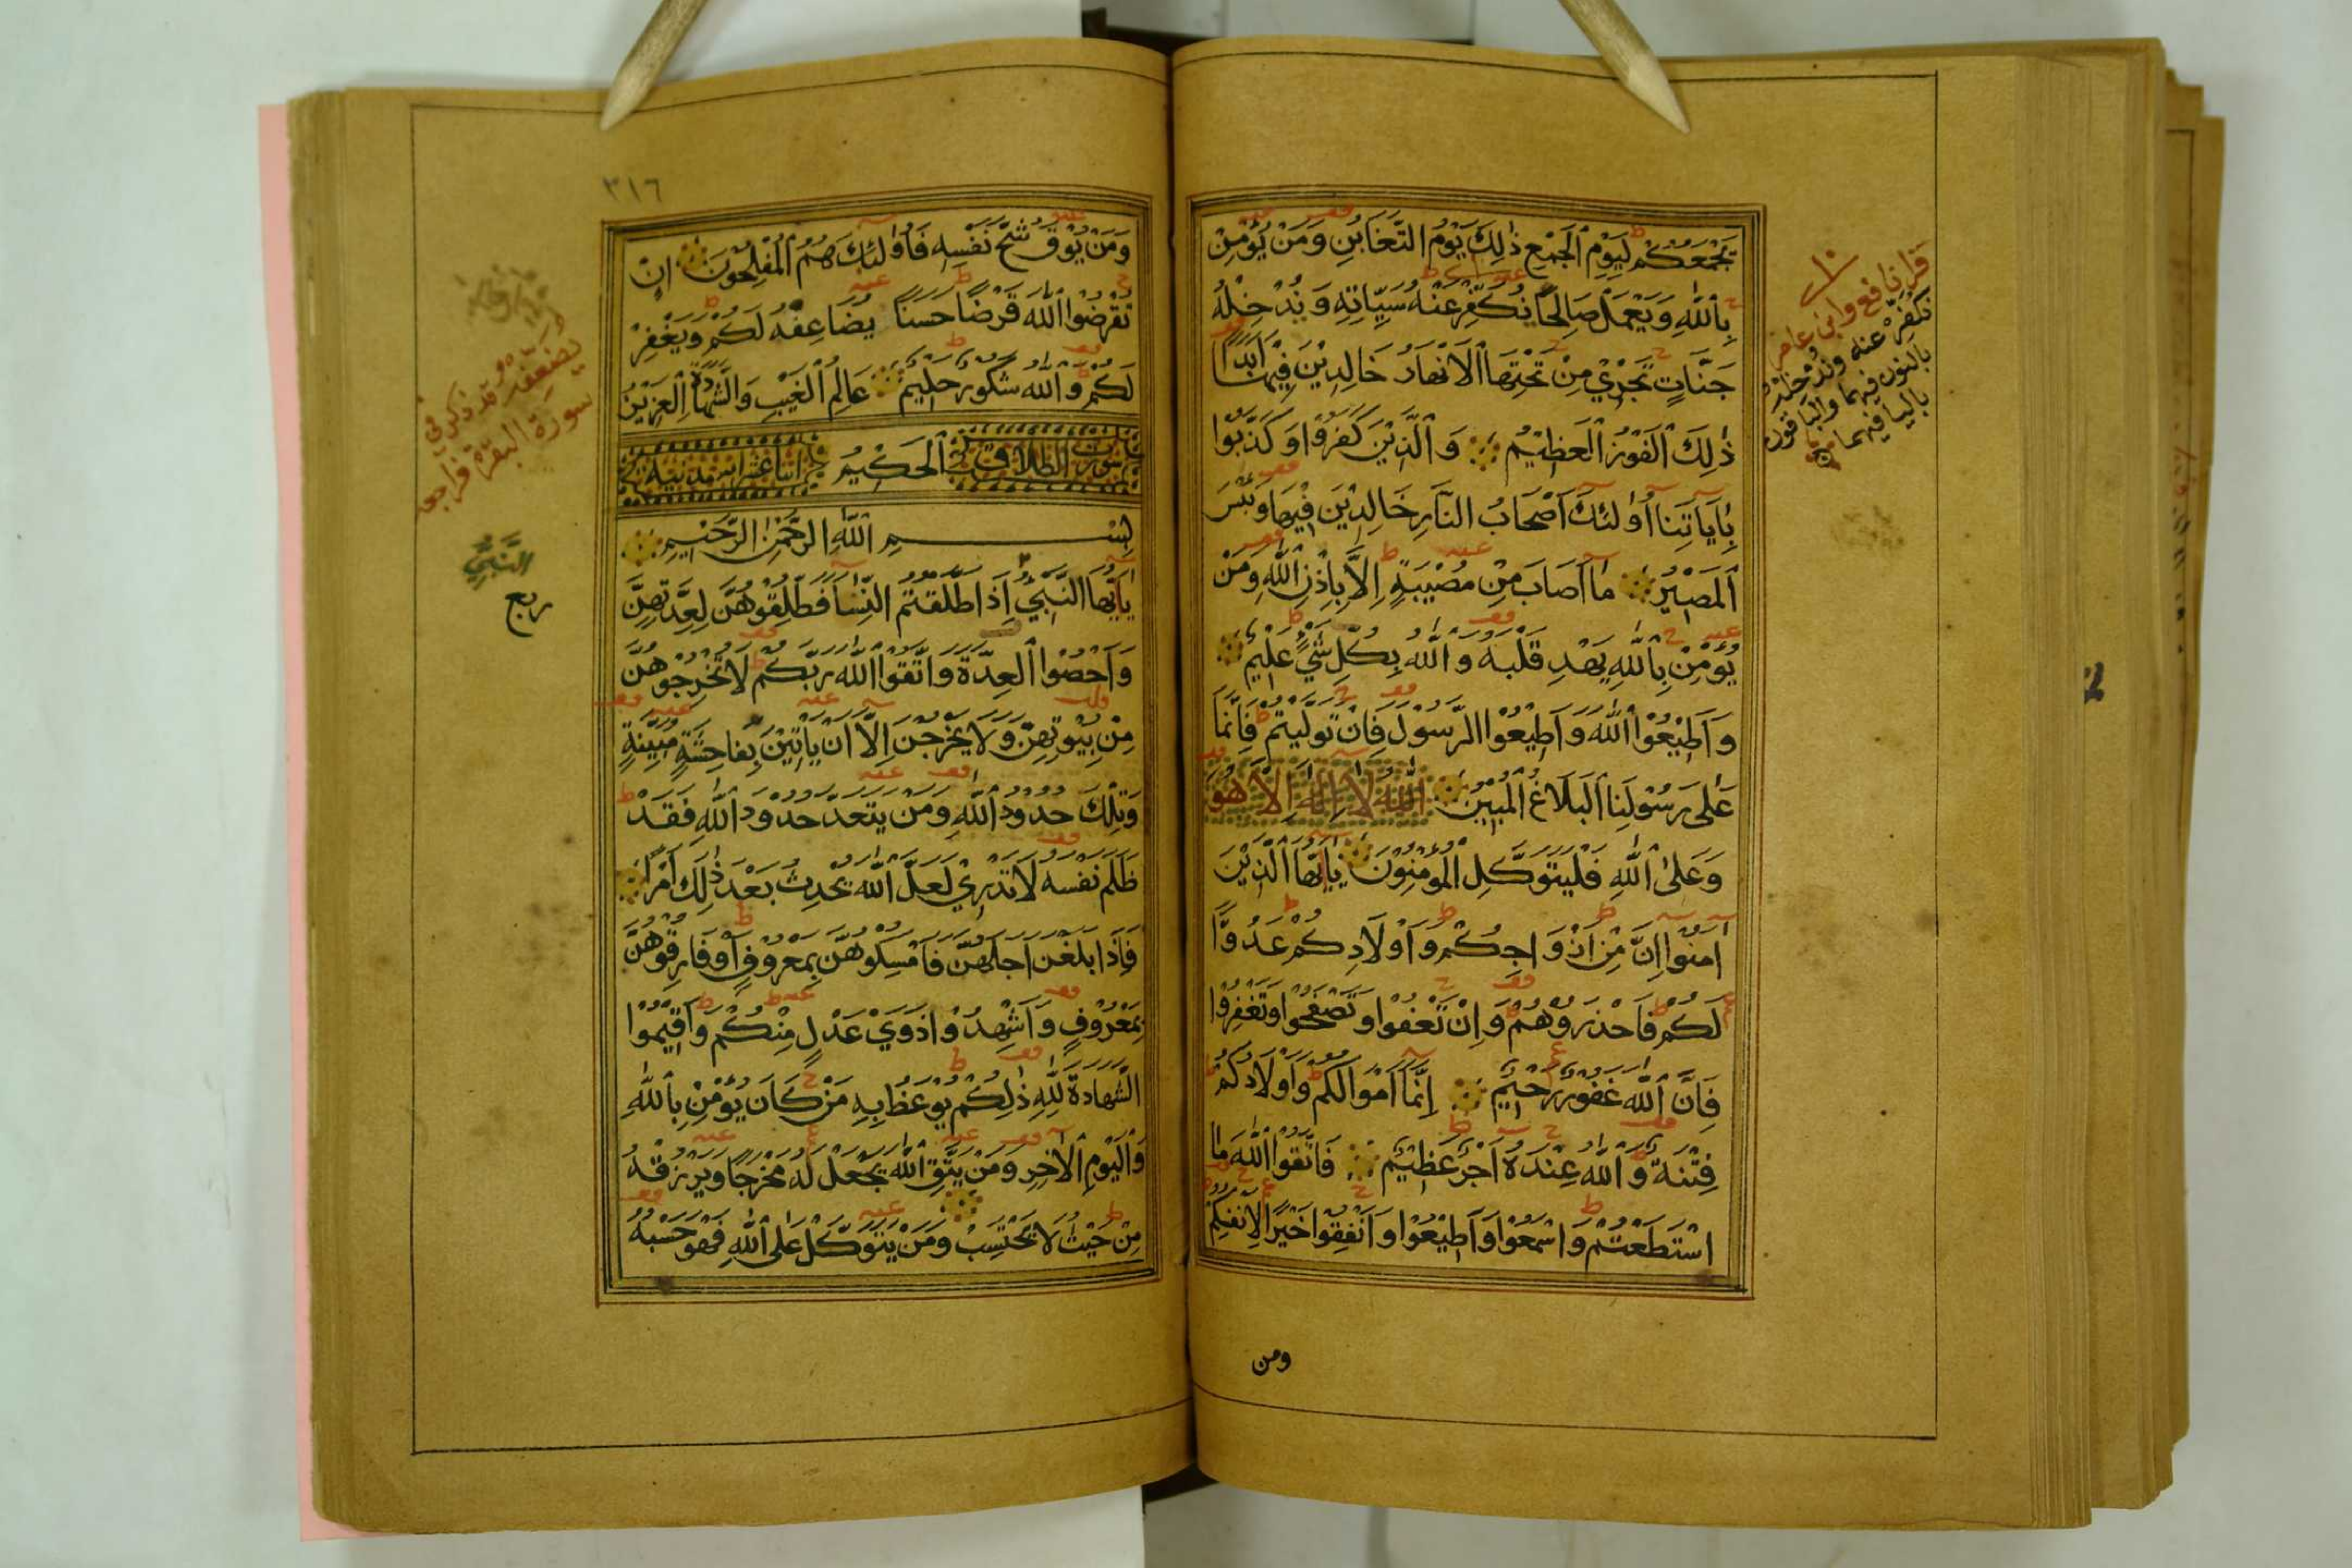 يَجْمَعُكُمْ لِيَوْمِ الْجَمْعِ ذٰلِكَ يَوْمُ التَّغَابُنِ وَمَنْ يُؤْمِنْ
بِاللّٰهِ وَيَعْمَلْ صَالِحًا نُكَفِّرْ عَنْهُ سَيِّاٰتِهِ وَنُدْخِلْهُ
جَنَّاتٍ تَجْرِيْ مِنْ تَحْتِهَا الْاَنْهَارُ خَالِدِيْنَ فِيْهَا اَبَدًا
ذٰلِكَ الْفَوْزُ الْعَظِيْمُ وَالَّذِيْنَ كَفَرُوْا وَكَذَّبُوْا
بِاٰيَاتِنَا اُوْلٰئِكَ اَصْحَابُ النَّارِ خَالِدِيْنَ فِيْهَا وَبِئْسَ
الْمَصِيْرُ مَا اَصَابَ مِنْ مُصِيْبَةٍ اِلَّا بِاِذْنِ اللّٰهِ وَمَنْ
يُؤْمِنْ بِاللّٰهِ يَهْدِ قَلْبَهُ وَاللّٰهُ بِكُلِّ شَيْءٍ عَلِيْمٌ
وَاَطِيْعُوْا اللّٰهَ وَاَطِيْعُوْا الرَّسُوْلَ فَاِنْ تَوَلَّيْتُمْ فَاِنَّمَا
عَلٰى رَسُوْلِنَا الْبَلَاغُ الْمُبِيْنُ اَللّٰهُ لَا اِلٰهَ اِلَّا هُوَ
وَعَلَى اللّٰهِ فَلْيَتَوَكَّلِ الْمُؤْمِنُوْنَ يَااَيُّهَا الَّذِيْنَ
اٰمَنُوْا اِنَّ مِنْ اَزْوَاجِكُمْ وَاَوْلَادِكُمْ عَدُوًّا
لَكُمْ فَاحْذَرُوْهُمْ وَاِنْ تَعْفُوْا وَتَصْفَحُوْا وَتَغْفِرُوْا
فَاِنَّ اللّٰهَ غَفُوْرٌ رَحِيْمٌ اِنَّمَا اَمْوَالُكُمْ وَاَوْلَادُكُمْ
فِتْنَةٌ وَاللّٰهُ عِنْدَهُ اَجْرٌ عَظِيْمٌ فَاتَّقُوْا اللّٰهَ مَا
اسْتَطَعْتُمْ وَاسْمَعُوْا وَاَطِيْعُوْا وَاَنْفِقُوْا خَيْرًا لِاَنْفُسِكُمْ
ومن
قرا نافع وابن عامر
نكفر عنه وندخله
بالنون فيهما والباقون
باليا فيهما
٣١٦
وَمَنْ يُوْقَ شُحَّ نَفْسِهِ فَاُوْلٰئِكَ هُمُ الْمُفْلِحُوْنَ اِنْ
تُقْرِضُوْا اللّٰهَ قَرْضًا حَسَنًا يُضَاعِفْهُ لَكُمْ وَيَغْفِرْ
لَكُمْ وَاللّٰهُ شَكُوْرٌ حَلِيْمٌ عَالِمُ الْغَيْبِ وَالشَّهَادَةِ الْعَزِيْزُ
سورة الطلاق الْحَكِيْمُ اثنا عشر اية مدنية
بِسْمِ اللّٰهِ الرَّحْمٰنِ الرَّحِيْمِ
يَااَيُّهَا النَّبِيُّ اِذَا طَلَّقْتُمُ النِّسَاءَ فَطَلِّقُوْهُنَّ لِعِدَّتِهِنَّ
وَاَحْصُوْا الْعِدَّةَ وَاتَّقُوْا اللّٰهَ رَبَّكُمْ لَا تُخْرِجُوْهُنَّ
مِنْ بُيُوْتِهِنَّ وَلَا يَخْرُجْنَ اِلَّا اَنْ يَاْتِيْنَ بِفَاحِشَةٍ مُبَيِّنَةٍ
وَتِلْكَ حُدُوْدُ اللّٰهِ وَمَنْ يَتَعَدَّ حُدُوْدَ اللّٰهِ فَقَدْ
ظَلَمَ نَفْسَهُ لَا تَدْرِيْ لَعَلَّ اللّٰهَ يُحْدِثُ بَعْدَ ذٰلِكَ اَمْرًا
فَاِذَا بَلَغْنَ اَجَلَهُنَّ فَاَمْسِكُوْهُنَّ بِمَعْرُوْفٍ اَوْ فَارِقُوْهُنَّ
بِمَعْرُوْفٍ وَاَشْهِدُوْا ذَوَيْ عَدْلٍ مِنْكُمْ وَاَقِيْمُوْا
الشَّهَادَةَ لِلّٰهِ ذٰلِكُمْ يُوْعَظُ بِهِ مَنْ كَانَ يُؤْمِنُ بِاللّٰهِ
وَالْيَوْمِ الْاٰخِرِ وَمَنْ يَتَّقِ اللّٰهَ يَجْعَلْ لَهُ مَخْرَجًا وَيَرْزُقْهُ
مِنْ حَيْثُ لَا يَحْتَسِبُ وَمَنْ يَتَوَكَّلْ عَلَى اللّٰهِ فَهُوَ حَسْبُهُ
يضعفه وقد ذكر في
سورة البقرة فراجعه
النَّبِيُّ
ربع